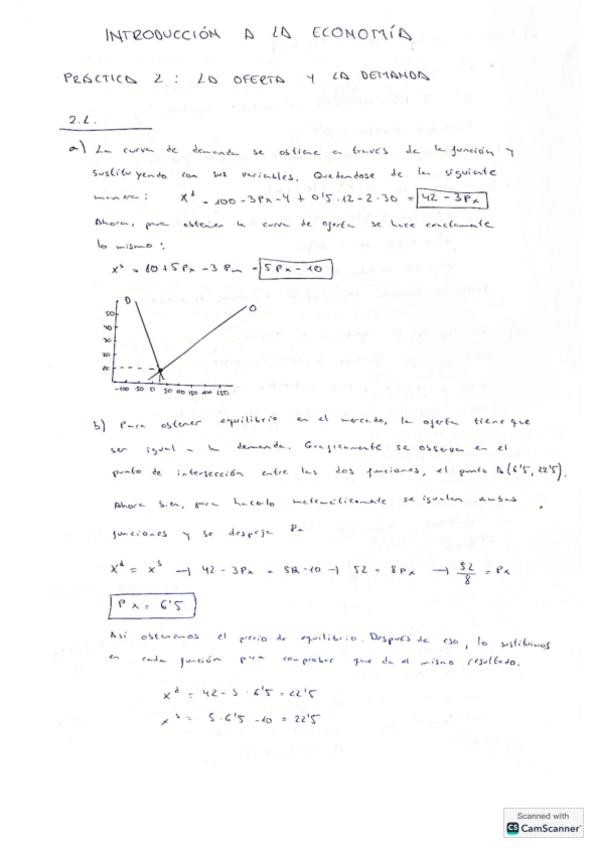 INTRODUCCIÓN A LA ECONOMÍA
PRÁCTICA 2: LA OFERTA Y LA DEMANDA
2.1.
a) La curva de demanda se obtiene a través de la función y
sustituyendo con sus variables. Quedandose de la siguiente
manera: X^d = 100 - 3Px - 4 + 0'5 · 12 - 2 · 30 = 42 - 3Px
Ahora, para obtener la curva de oferta se hace exactamente
lo mismo:
X^s = 10 + 5Px - 3Pm = 5Px - 10
D
O
50
40
30
20
-100 -50 0 50 100 150 200 250
b) Para obtener equilibrio en el mercado, la oferta tiene que
ser igual a la demanda. Graficamente se observa en el
punto de intersección entre las dos funciones, el punto A (6'5, 22'5).
Ahora bien, para hacerlo matemáticamente se igualan ambas
funciones y se despeja Px
X^d = X^s → 42 - 3Px = 5Px - 10 → 52 = 8Px → 52/8 = Px
Px = 6'5
Así obtenemos el precio de equilibrio. Después de eso, lo sustituimos
en cada función para comprobar que da el mismo resultado.
X^d = 42 - 3 · 6'5 = 22'5
X^s = 5 · 6'5 - 10 = 22'5
Scanned with
CS CamScanner